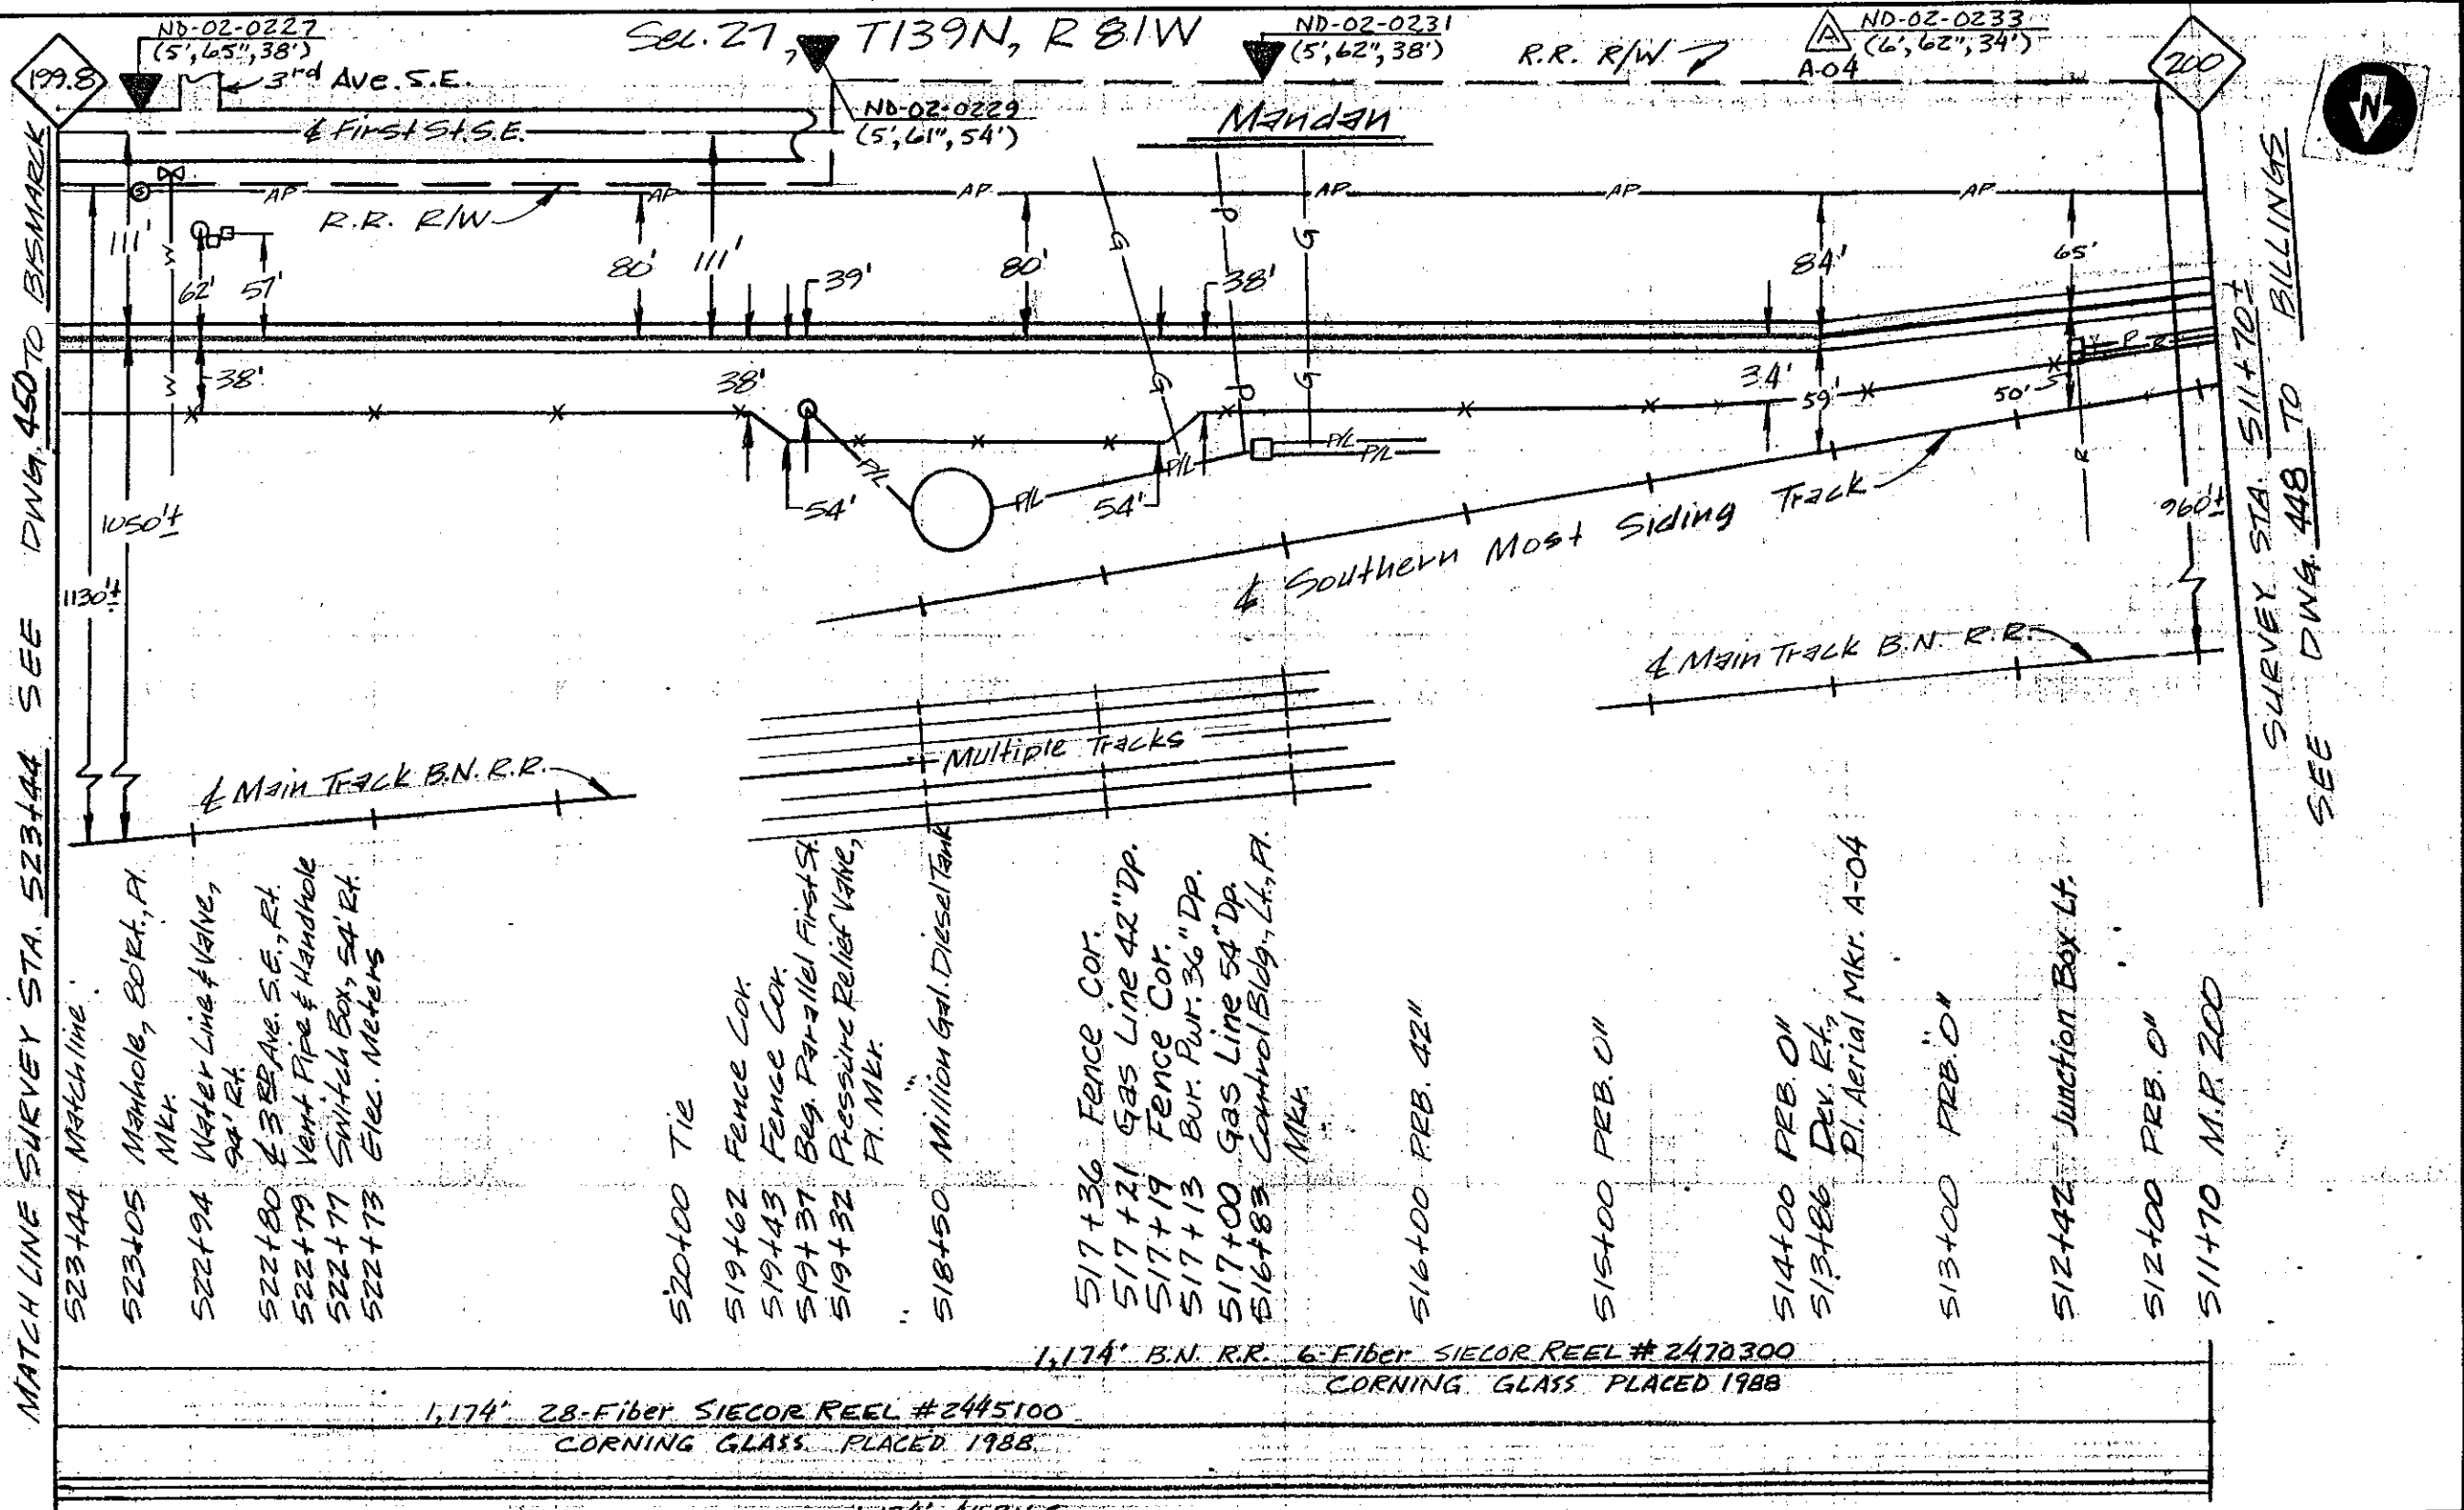 ND-02-0227
(5',65",38')
Sec. 27, T139N, R 81W
ND-02-0231
(5',62",38')
R.R. R/W
A
A-04
ND-02-0233
(6',62",34')
199.8
200
N
3rd Ave. S.E.
ND-02-0229
(5',61",54')
Mandan
℄ First St. S.E.
AP AP AP AP AP AP
R.R. R/W
111'
W
62'
57'
80'
111'
39'
80'
G
P
G
38'
84'
65'
W
38'
38'
G
P
G
34'
59'
50'
P R
R
54'
P/L
P/L
54'
P/L
P/L
P/L
1050'±
1130'±
960'±
℄ Southern Most Siding Track
℄ Main Track B.N. R.R.
Multiple Tracks
℄ Main Track B.N. R.R.
MATCH LINE SURVEY STA. 523+44 SEE DWG. 450 TO BISMARCK
SURVEY STA. 511+70±
SEE DWG. 448 TO BILLINGS
523+44 Matchline
523+05 Manhole, 80' Rt., Pl.
Mkr.
522+94 Water Line & Valve,
94' Rt.
522+80 ℄ 3RD Ave. S.E., Rt.
522+79 Vent Pipe & Handhole
522+77 Switch Box, 54' Rt.
522+73 Elec. Meters
520+00 Tie
519+62 Fence Cor.
519+43 Fence Cor.
519+37 Beg. Parallel First St.
519+32 Pressure Relief Valve,
Pl. Mkr.
518+50 Million Gal. Diesel Tank
517+36 Fence Cor.
517+21 Gas Line 42" Dp.
517+19 Fence Cor.
517+13 Bur. Pwr. 36" Dp.
517+00 Gas Line 54" Dp.
516+83 Control Bldg., Lt., Pl.
Mkr.
516+00 PRB. 42"
515+00 PRB. 0"
514+00 PRB. 0"
513+86 Dev. Rt.,
Pl. Aerial Mkr. A-04
513+00 PRB. 0"
512+42 Junction Box Lt.
512+00 PRB. 0"
511+70 M.P. 200
1,174' B.N. R.R. 6-Fiber SIECOR REEL # 2470300
CORNING GLASS PLACED 1988
1,174' 28-Fiber SIECOR REEL # 2445100
CORNING GLASS PLACED 1988